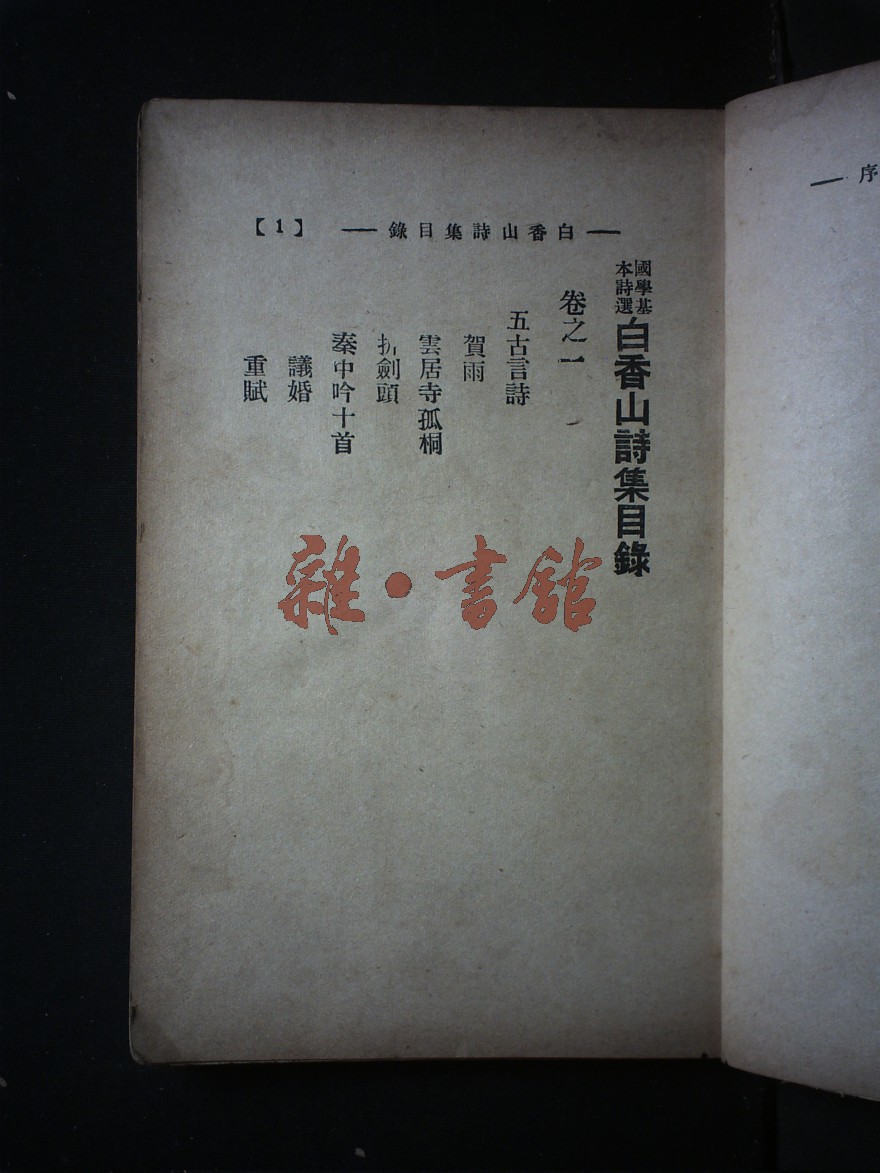 序
白香山詩集目錄
【1】
國學基本詩選白香山詩集目錄
卷之一
五古言詩
賀雨
雲居寺孤桐
折劍頭
秦中吟十首
議婚
重賦
雜·書館